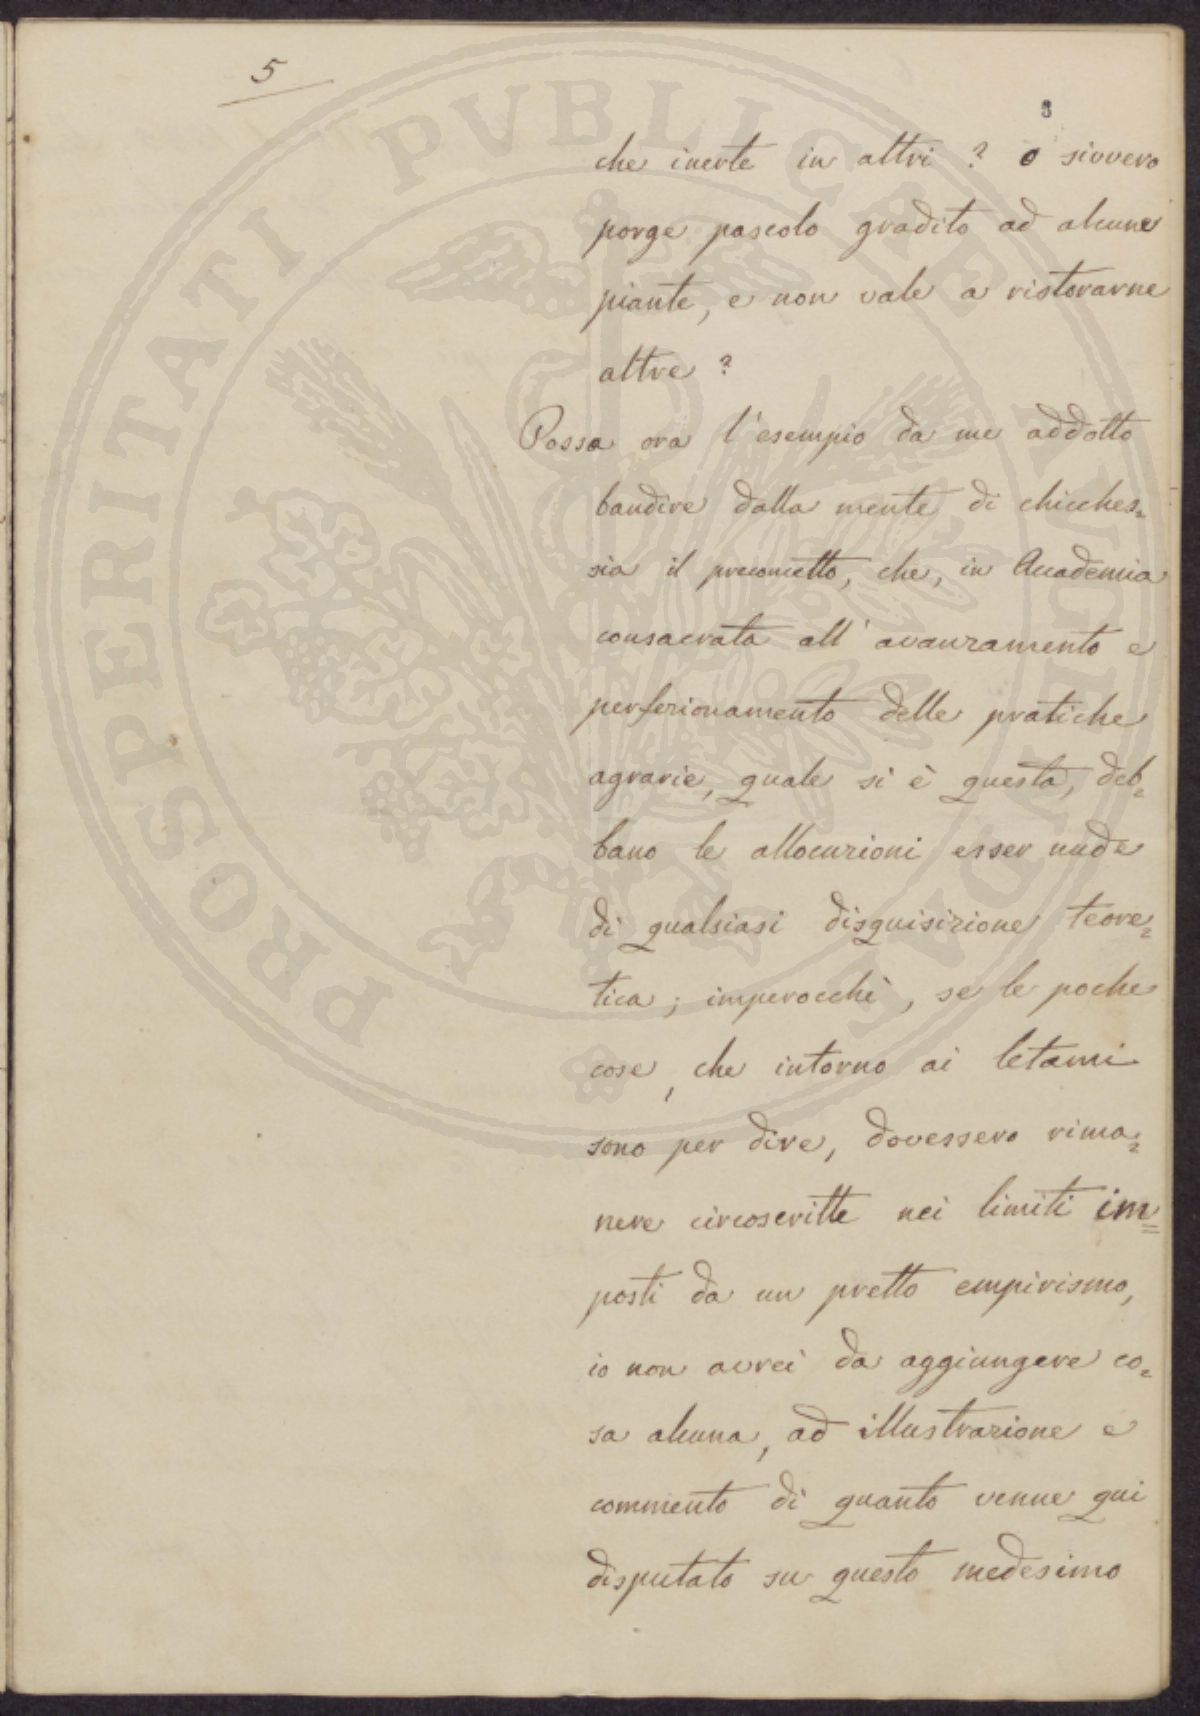 5
3
che inerte in altri? o sivvero
porge pascolo gradito ad alcune
piante, e non vale a ristorarne
altre?
Possa ora l'esempio da me addotto
bandire dalla mente di chicches=
sia il preconcetto, che, in Accademia
consacrata all'avanzamento e
perfezionamento delle pratiche
agrarie, quale si è questa, deb=
bano le allocuzioni esser nude
di qualsiasi disquisizione teore=
tica; imperocchè, se le poche
cose, che intorno ai letami
sono per dire, dovessero rima=
nere circoscritte nei limiti im=
posti da un pretto empirismo,
io non avrei da aggiungere co=
sa alcuna, ad illustrazione e
commento di quanto venne qui
disputato su questo medesimo
PROSPERITATI PVBLICAE AVGENDAE